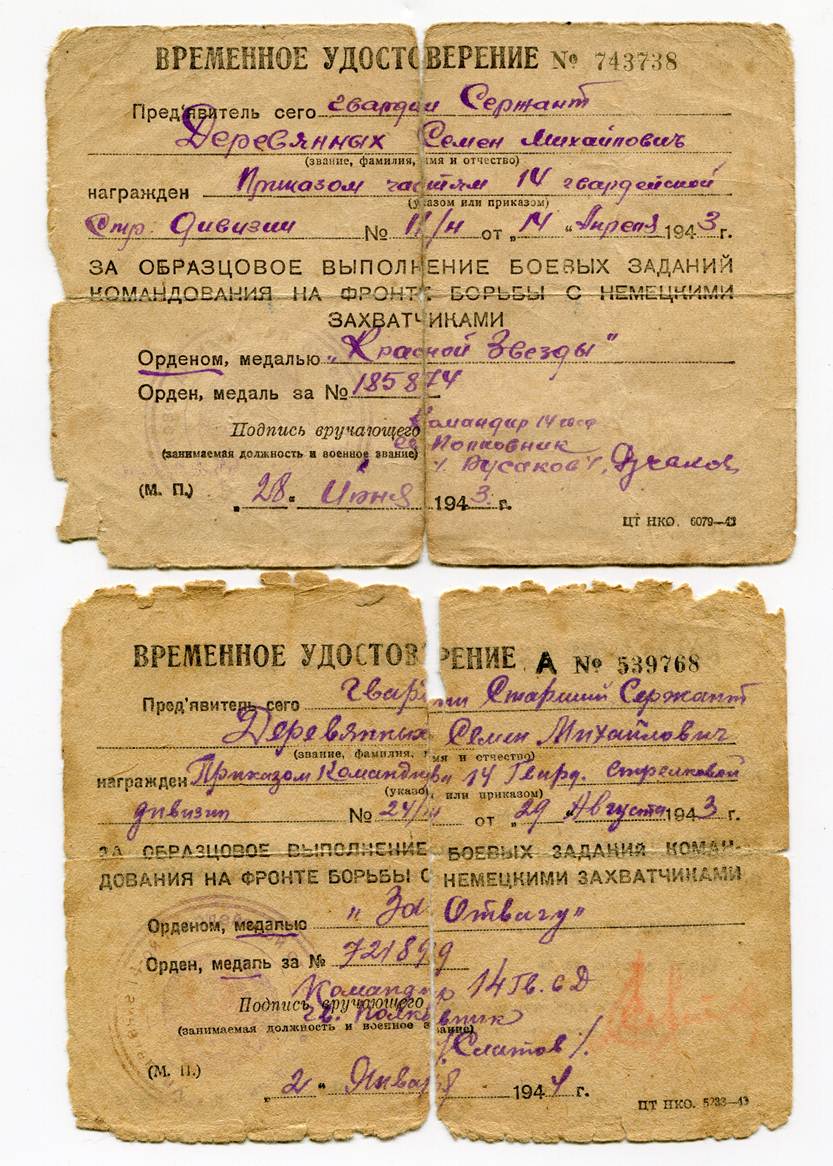 ВРЕМЕННОЕ УДОСТОВЕРЕНИЕ № 743738
Пред'явитель сего гвардии Сержант
Деревянных Семен Михайловичъ
(звание, фамилия, имя и отчество)
награжден Приказом частям 14 гвардейской
(указом или приказом)
Стр. дивизии № 11/н от „14“ Апреля 1943 г.
ЗА ОБРАЗЦОВОЕ ВЫПОЛНЕНИЕ БОЕВЫХ ЗАДАНИЙ
КОМАНДОВАНИЯ НА ФРОНТЕ БОРЬБЫ С НЕМЕЦКИМИ
ЗАХВАТЧИКАМИ
Орденом, медалью „Красной Звезды"
Орден, медаль за № 185874
Командир 14
Подпись вручающего Полковник
(занимаемая должность и военное звание) /Русаков/,
(М. П.) „28“ Июня 1943 г.
ЦТ НКО. 6079—43
ВРЕМЕННОЕ УДОСТОВЕРЕНИЕ А № 539768
Пред'явитель сего Гвардии Старший Сержант
Деревянных Семен Михайлович
(звание, фамилия, имя и отчество)
награжден Приказом Командира 14 Гвард. стрелковой
(указом или приказом)
дивизии № 24/н от „29“ Августа 1943 г.
ЗА ОБРАЗЦОВОЕ ВЫПОЛНЕНИЕ БОЕВЫХ ЗАДАНИЙ КОМАН-
ДОВАНИЯ НА ФРОНТЕ БОРЬБЫ С НЕМЕЦКИМИ ЗАХВАТЧИКАМИ
Орденом, медалью „За Отвагу"
Орден, медаль за № 721899
Командир 14 Гв. с Д
Подпись вручающего гв. полковник
(занимаемая должность и военное звание) /Слатов/.
(М. П.)
„2“ Января 1944 г.
ЦТ НКО. 5233—43